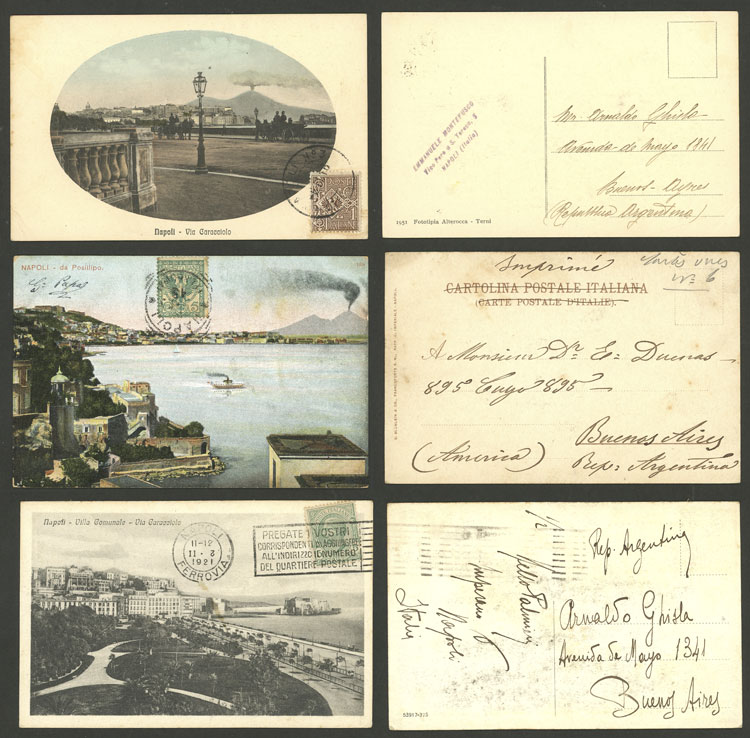 Napoli - Via Caracciolo
EMMANUELE MONTEFUSCO
NAPOLI (Italia)
1951 Fototipia Alterocca - Terni
Mr. Arnaldo Ghisla
Avenida de Mayo 1341
Buenos-Ayres
(Republica Argentina)
NAPOLI - da Posillipo.
NAPOLI
Imprimé
Nº 6
CARTOLINA POSTALE ITALIANA
(CARTE POSTALE D'ITALIE).
A Monsieur Dr. E= Duenas
895 Cuyo 895
Buenos Aires
(America)
Rep= Argentina
Napoli - Villa Comunale - Via Caracciolo
NAPOLI
11-12
11-3
1921
FERROVIA
PREGATE I VOSTRI
CORRISPONDENTI DI AGGIUNGERE
ALL'INDIRIZZO IL NUMERO
DEL QUARTIERE POSTALE
1/2
Napoli
Italia
Rep. Argentina
Arnaldo Ghisla
Avenida de Mayo 1341
Buenos Aires